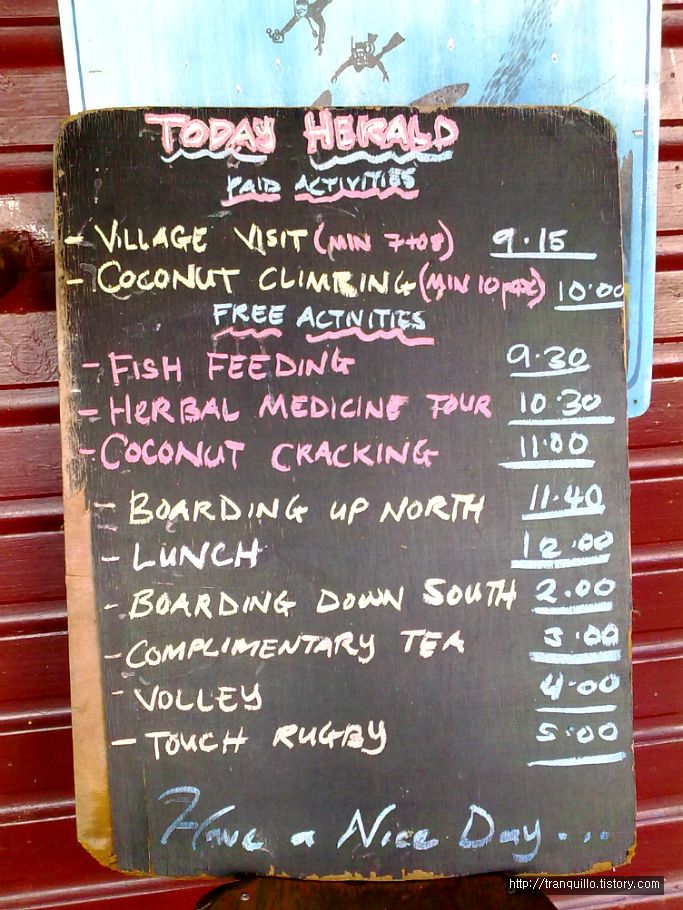 TODAY HERALD
PAID ACTIVITIES
- VILLAGE VISIT (MIN 7to8) 9.15
- COCONUT CLIMBING (MIN 10 pax) 10.00
FREE ACTIVITIES
- FISH FEEDING 9.30
- HERBAL MEDICINE TOUR 10.30
- COCONUT CRACKING 11.00
- BOARDING UP NORTH 11.40
- LUNCH 12.00
- BOARDING DOWN SOUTH 2.00
- COMPLIMENTARY TEA 3.00
- VOLLEY 4.00
- TOUCH RUGBY 5.00
Have a Nice Day...
http://tranquillo.tistory.com